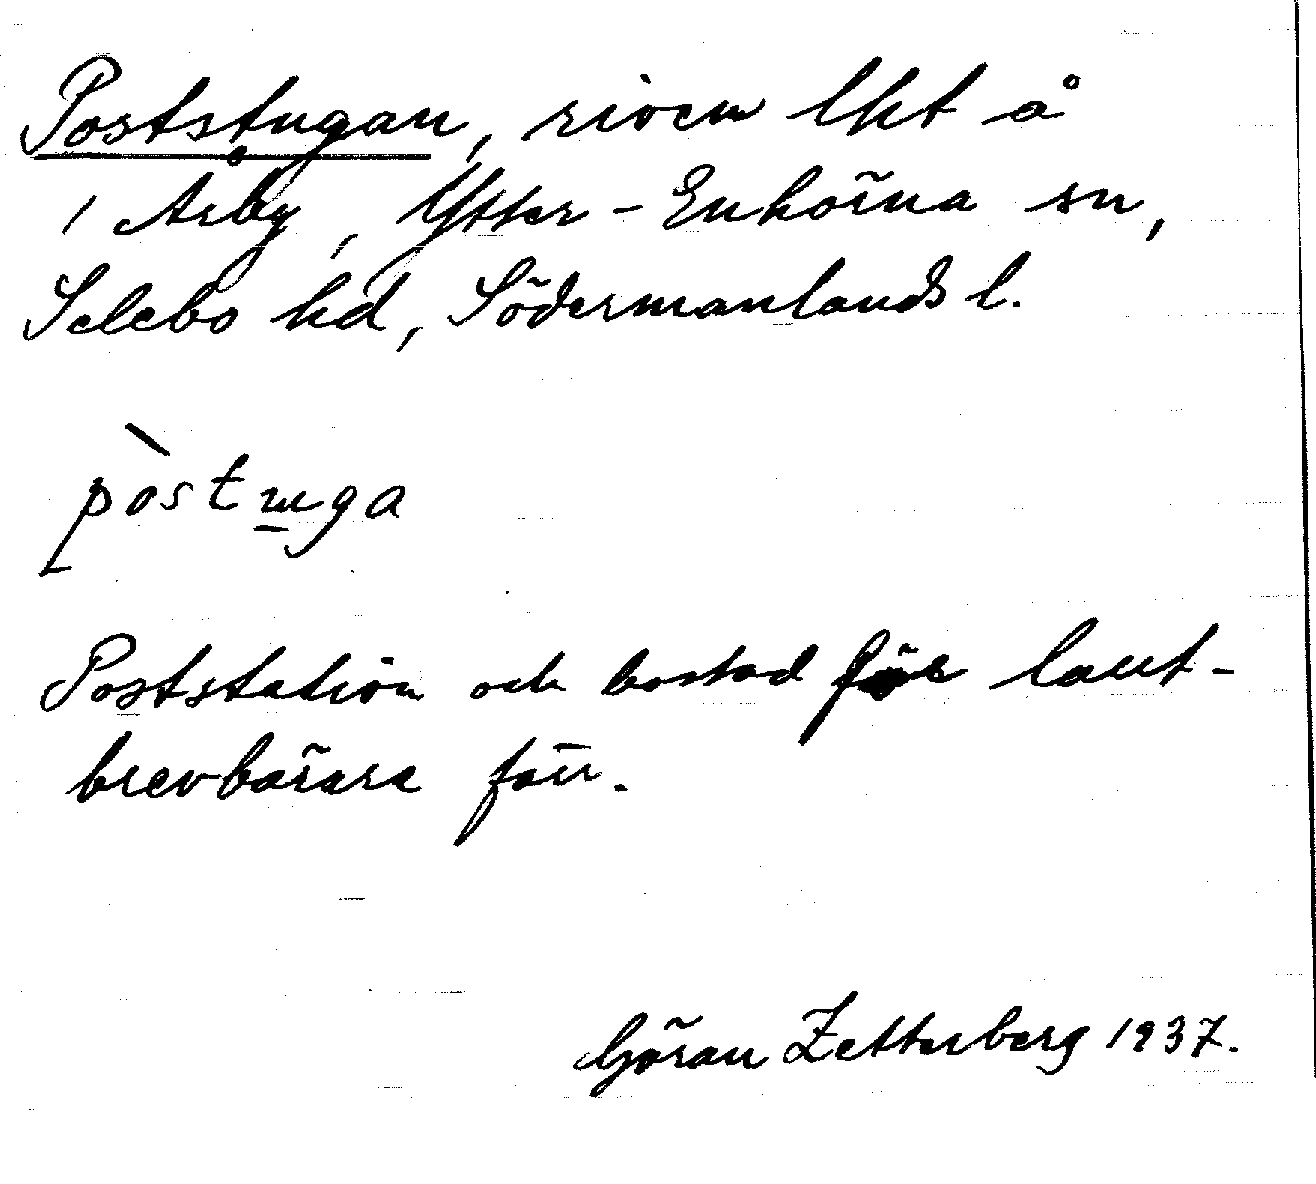 Poststugan, riven lht å
1 Årby, Ytter-Enhörna sn,
Selebo hd, Södermanlands l.
pòstuga
Poststation och bostad för lant-
brevbärare förr.
Göran Zetterberg 1937.